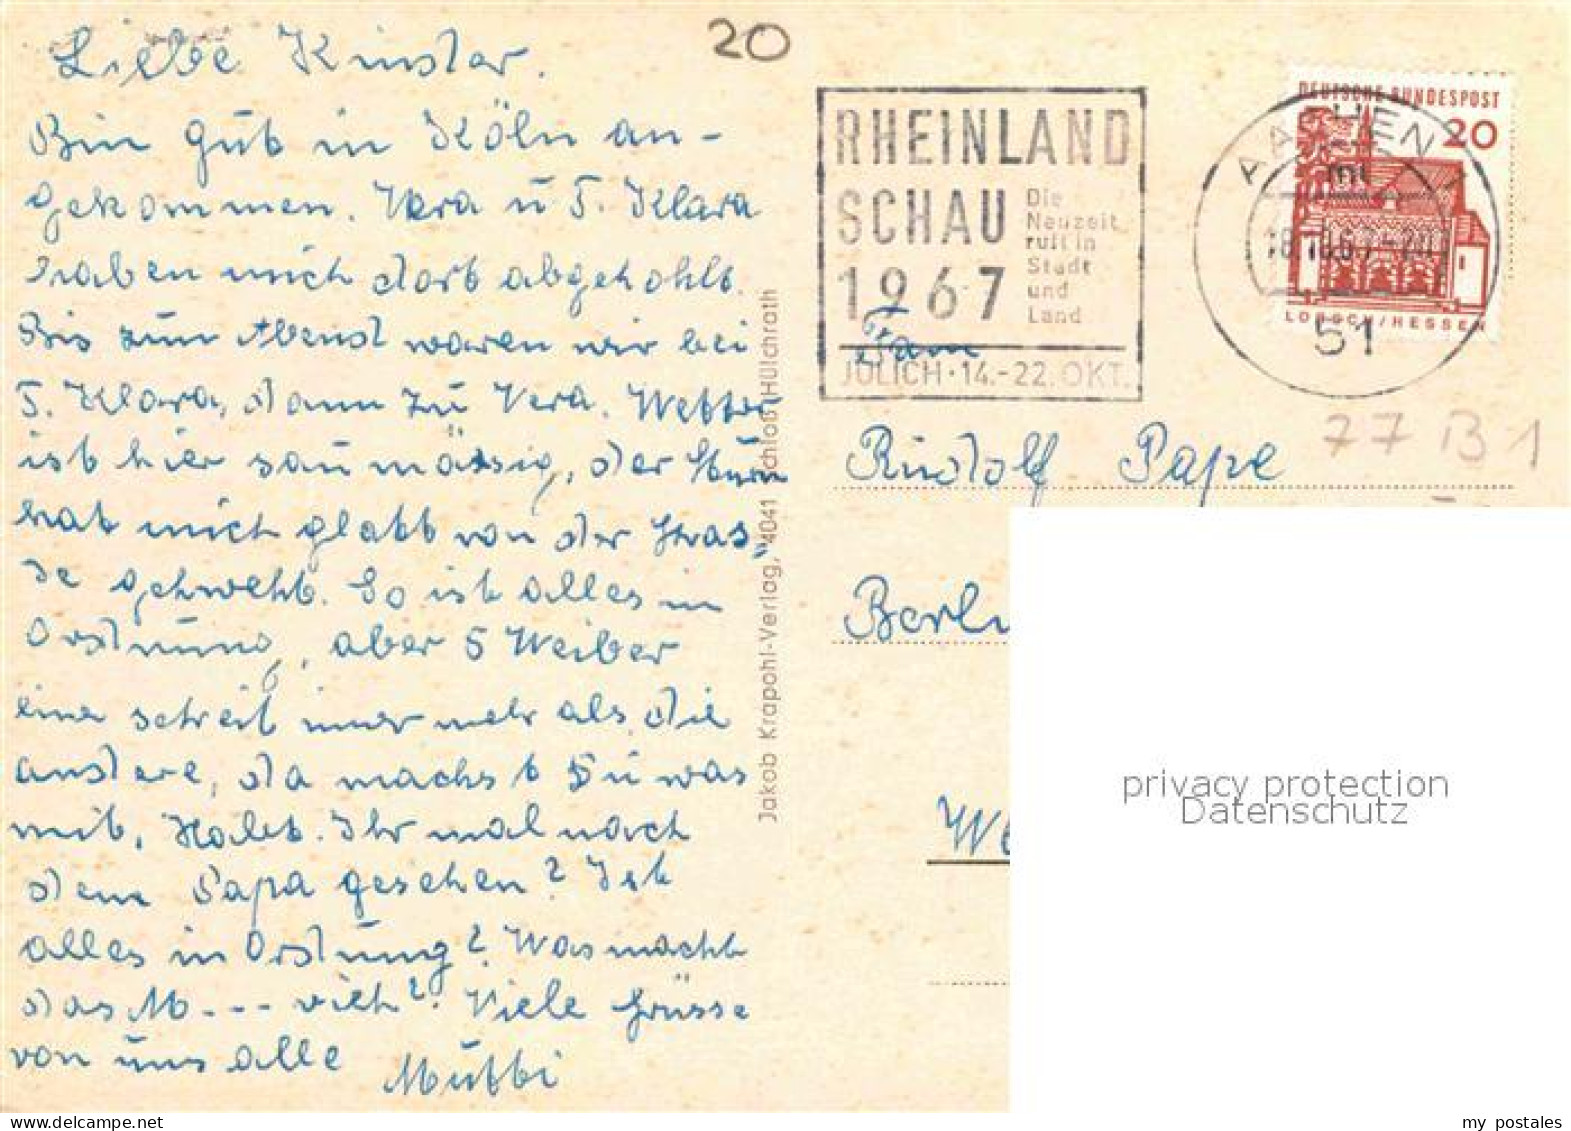 20
Liebe Kinder.
Bin gut in Köln an-
gekommen. Vera u T. Klara
haben mich dort abgehohlt.
Bis zum Abend waren wir bei
T. Klara, dann zu Vera. Wetter
ist hier saumässig, der Sturm
hat mich glatt von der Stras=
se gehweht. So ist alles in
Ordnung, aber 5 Weiber
eine schreit imer mehr als die
andere, da machst Du was
mit. Habt Ihr mal nach
dem Papa gesehen? Ist
alles in Ordnung? Was macht
das M--- vieh? Viele Grüsse
von uns alle Mutti
Jakob Krapohl-Verlag, 4041 Schloß Hülchrath
RHEINLAND
SCHAU
1967
Die
Neuzeit
ruft in
Stadt
und
Land
JÜLICH · 14.-22. OKT.
AACHEN 1
mt
18.10.67-20
51
DEUTSCHE BUNDESPOST
20
LORSCH/HESSEN
Fam
77 B 1
Rudolf Pape
Berli
privacy protection
Datenschutz
my postales